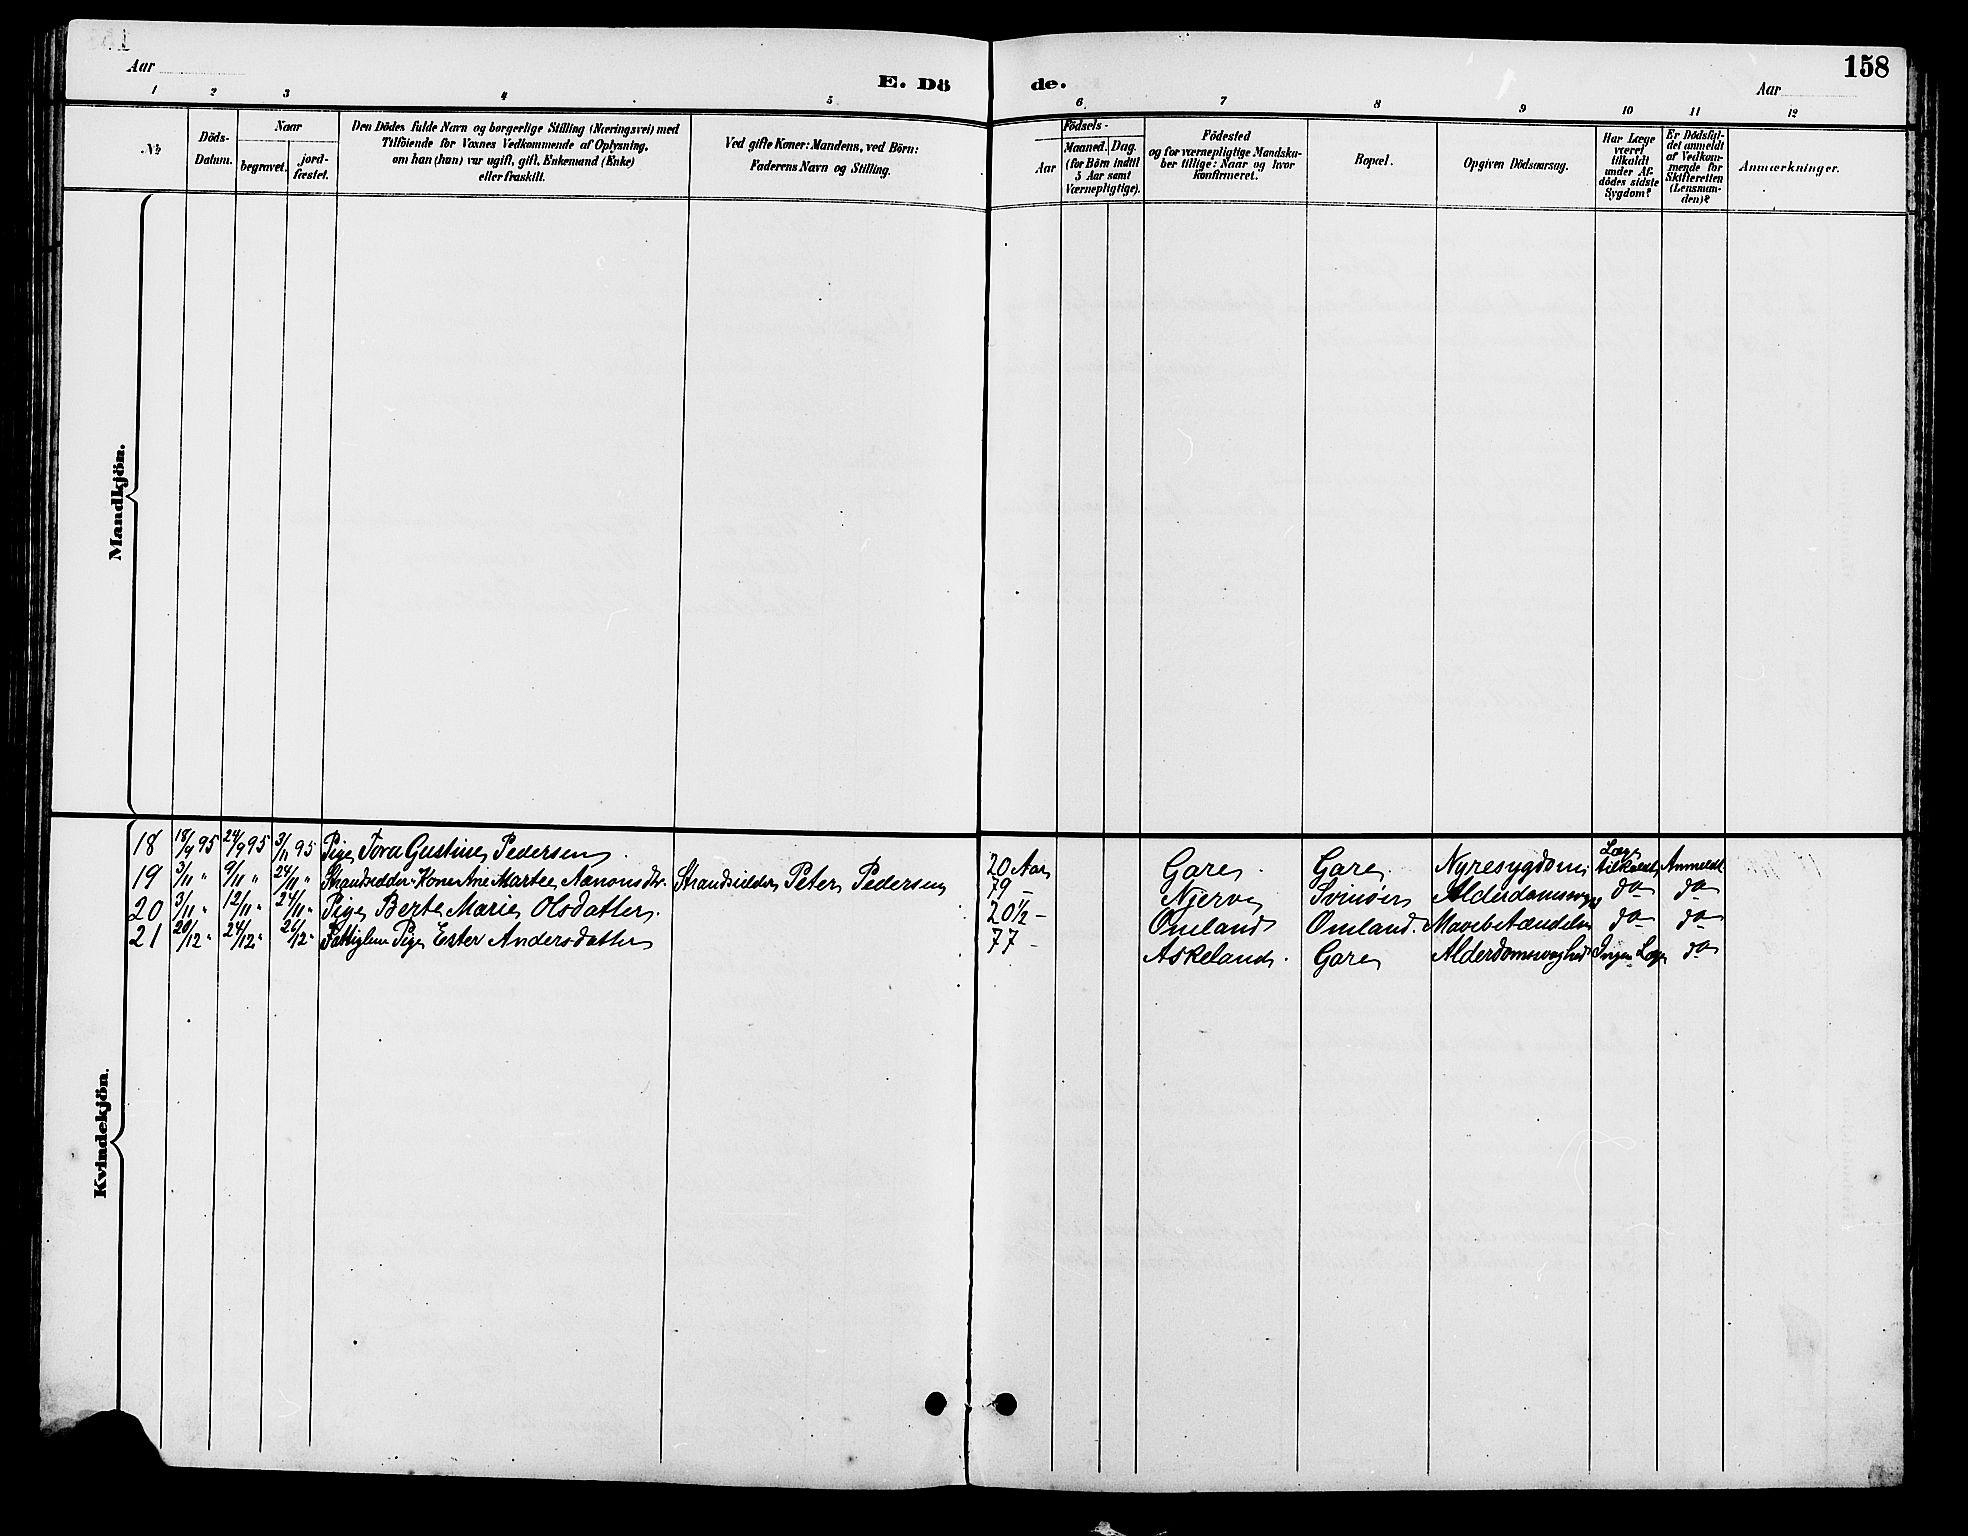 158
Aar
E. Dö de.
Aar
1 2 3 4 5 6 7 8 9 10 11 12
№
Döds-Datum.
Naar
begravet.
jord-fæstet.
Den Dödes fulde Navn og borgerlige Stilling (Næringsvei) med
Tilföiende for Voxnes Vedkommende af Oplysning,
om han (hun) var ugift, gift, Enkemand (Enke)
eller fraskilt.
Ved gifte Koner: Mandens, ved Börn:
Faderens Navn og Stilling.
Födsels-
Aar
Maaned. Dag.
(for Börn indtil
5 Aar samt
Værnepligtige).
Födested
og for værnepligtige Mandska-
ber tillige: Naar og hvor
konfirmeret.
Bopæl.
Opgiven Dödsaarsag.
Har Læge
været
tilkaldt
under Af-
dödes sidste
Sygdom?
Er Dödsfal-
det anmeldt
af Vedkom-
mende for
Skifteretten
(Lensman-
den)?
Anmærkninger.
Mandkjön.
Kvindekjön.
18 18/9 95 24/9 95 3/11 95 Pige Tora Gustine Pedersen. 20 Aar Gare. Gare. Nyresygdom Læge tilkaldt Anmeldt
19 3/11 " 9/11 " 24/11 " Strandsidder-Kone Ane Martee Aanonsdtr. Strandsidder Peter Pedersen 79 - Njerve Svinör Alderdomssvag do do
20 3/11 " 12/11 " 24/11 " Pige Berte Marie Olsdatter. 20 1/2 - Omland Omland. Mavebetændelse do do
21 20/12 " 24/12 " 26/12 " Fattiglem Pige Ester Andersdatter 77 - Askeland. Gare Alderdomssvaghed Ingen Læge do